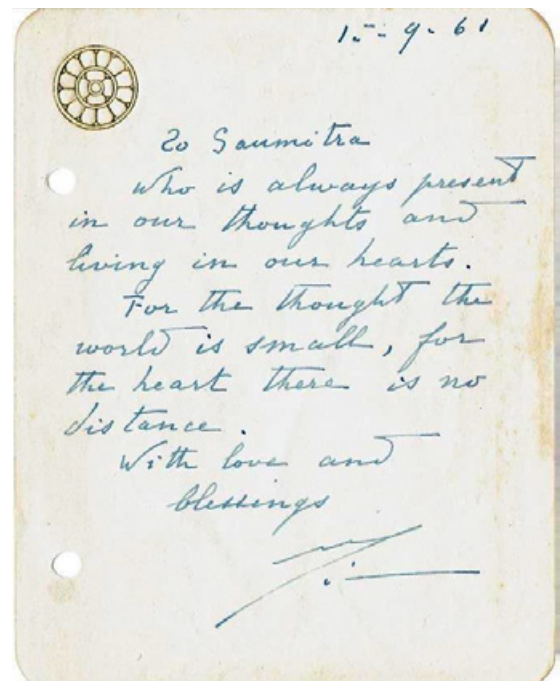 15-9-61
To Saumitra
who is always present
in our thoughts and
living in our hearts.
For the thought the
world is small, for
the heart there is no
distance.
With love and
blessings